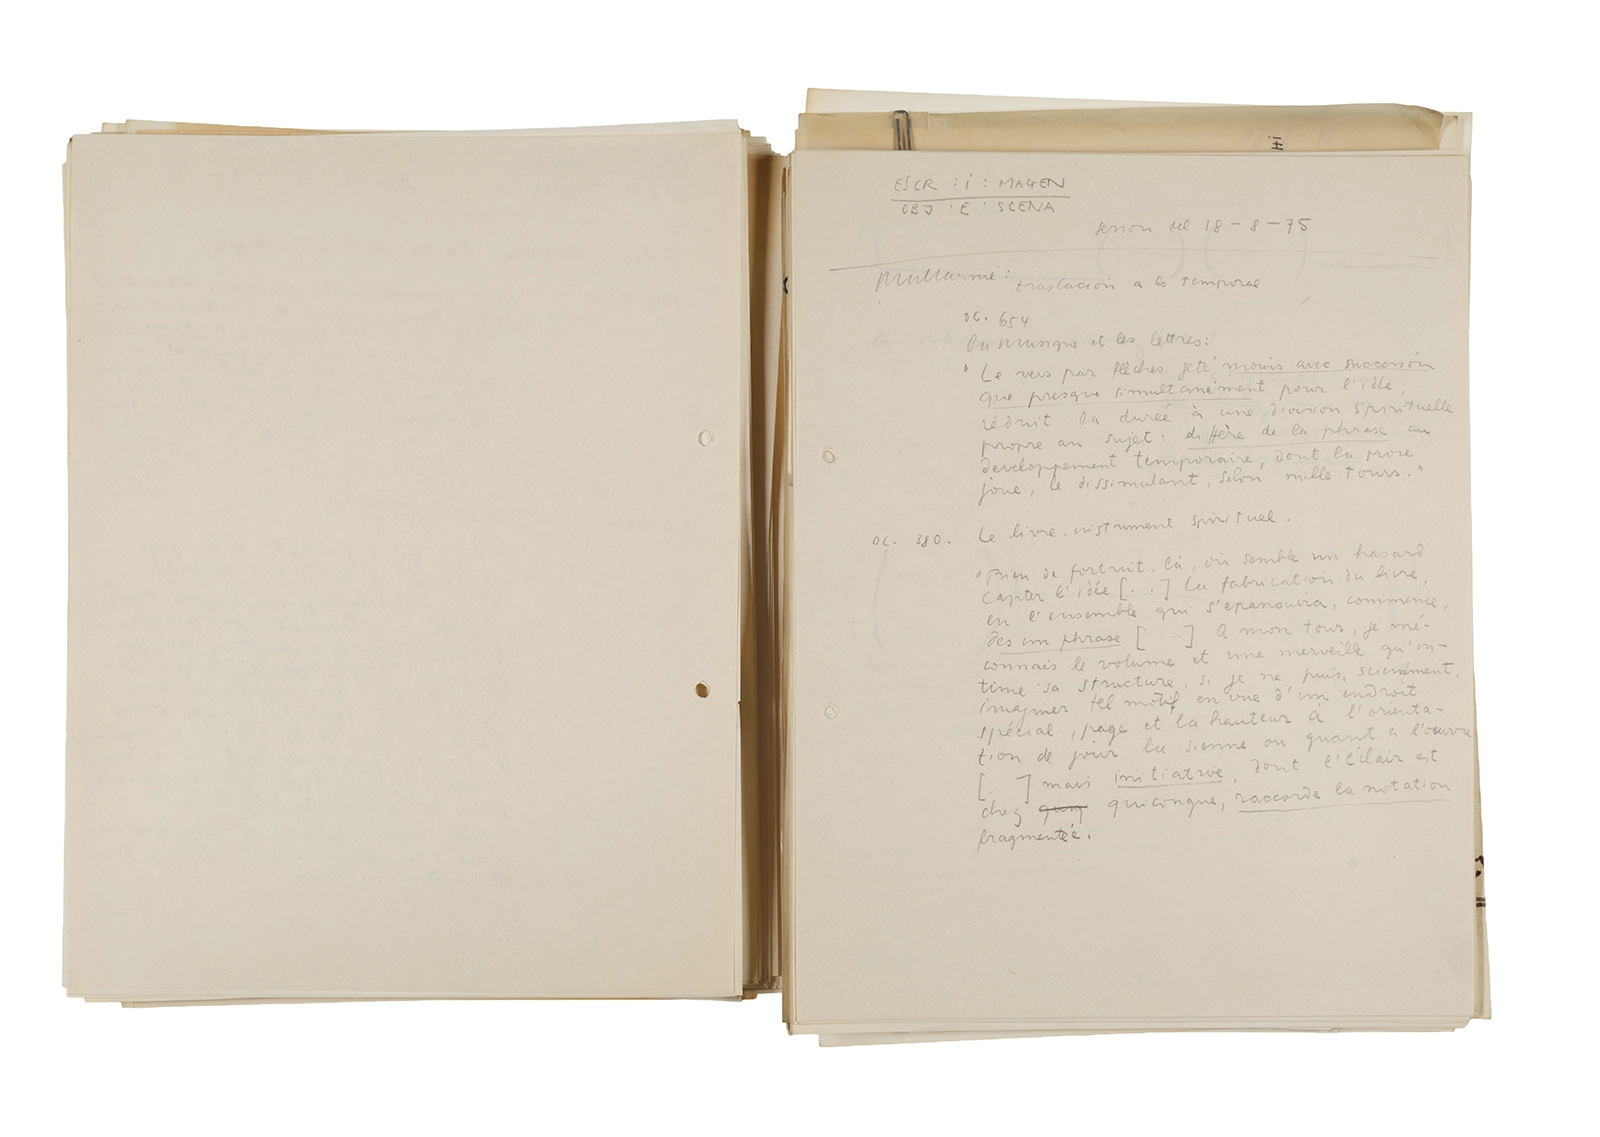 ESCR : i : MAGEN
OBJ : E : SCENA
sesion del 18 - 8 - 75
Mallarmé: traslación a lo temporal
OC. 654
La Musique et les lettres:
"Le vers par flèches jeté moins avec succession
que presque simultanément pour l'idée,
réduit la dureé à une division spirituelle
propre au sujet: diffère de la phrase au
developpement temporaire, dont la prose
joue, le dissimulant, selon mille tours."
OC. 380. Le livre, instrument spirituel.
"Rien de fortruit, là, où semble un hasard
capter l'idée [...] La fabrication du livre,
en l'ensemble qui s'epanouira, commence,
dès un phrase [...] A mon tour, je mé-
connais le volume et une merveille qu'in-
time sa structure, si je ne puis, sciemment,
imaginer tel motif en vue d'un endroit
spécial, page et la hauteur à l'orienta-
tion de jour la sienne ou quant a l'oeuvre
[...] mais initiative, dont l'éclair est
chez quiconque, raccorde la notation
fragmentée.